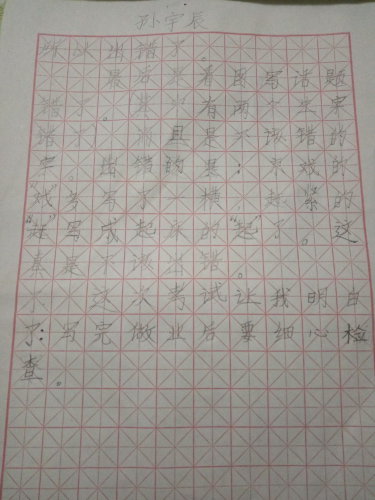 孙宇辰
所以出错了。
最后来看图写话题
错了。其中有两个生字
错了，而且是不该错的
字。出错的是：求戏的
“戏”多写了一横，赶紧的
“赶”写成起床的“起”了。这
真是不该出错。
这次考试让我明白
了：写完做业后要细心检
查。